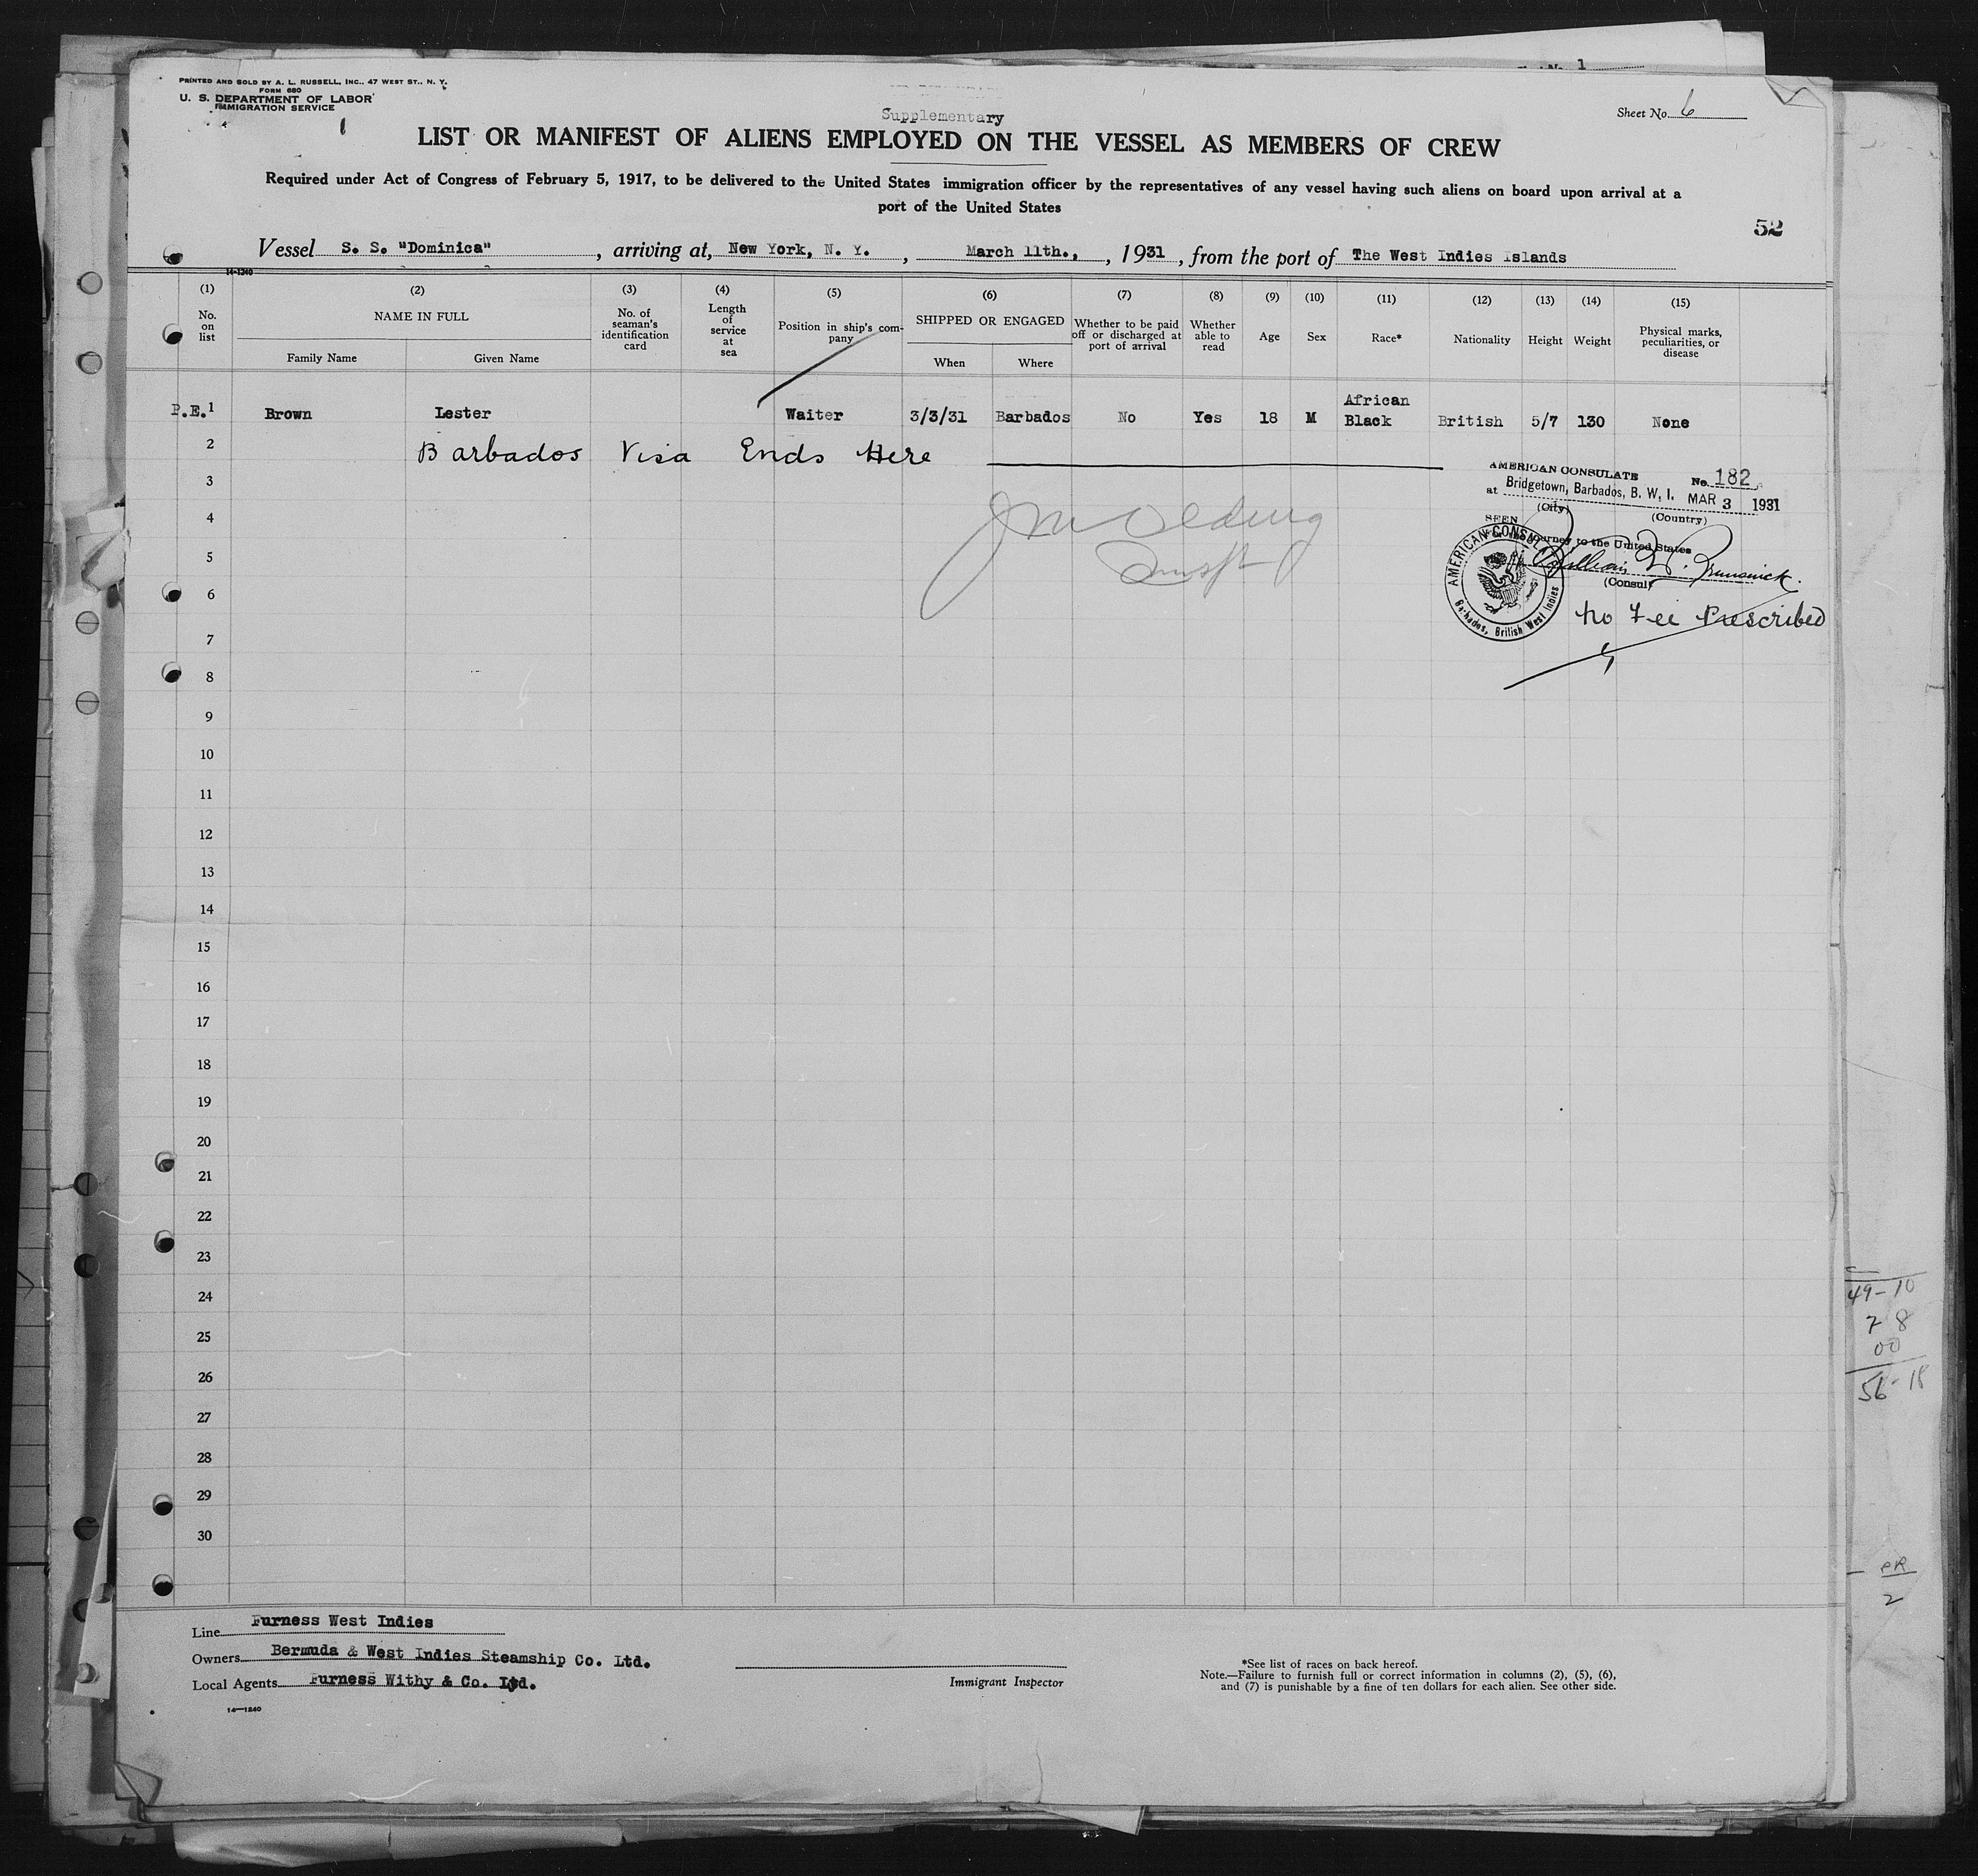 PRINTED AND SOLD BY A. L. RUSSELL, INC., 47 WEST ST., N. Y.
FORM 680
U. S. DEPARTMENT OF LABOR
IMMIGRATION SERVICE
1
Supplementary
Sheet No. 6
LIST OR MANIFEST OF ALIENS EMPLOYED ON THE VESSEL AS MEMBERS OF CREW
Required under Act of Congress of February 5, 1917, to be delivered to the United States immigration officer by the representatives of any vessel having such aliens on board upon arrival at a
port of the United States
52
Vessel S. S. "Dominica", arriving at, New York, N. Y., March 11th., 1931, from the port of The West Indies Islands
14-1240
(1) (2) (3) (4) (5) (6) (7) (8) (9) (10) (11) (12) (13) (14) (15)
No. on list NAME IN FULL Family Name Given Name No. of seaman's identification card Length of service at sea Position in ship's company SHIPPED OR ENGAGED When Where Whether to be paid off or discharged at port of arrival Whether able to read Age Sex Race* Nationality Height Weight Physical marks, peculiarities, or disease
P.E. 1 Brown Lester Waiter 3/3/31 Barbados No Yes 18 M African Black British 5/7 130 None
2 Barbados Visa Ends Here
AMERICAN CONSULATE No. 182
at Bridgetown, Barbados, B. W. I. MAR 3 1931
(City) (Country)
SEEN
journey to the United States
(Consul)
AMERICAN CONSUL
Barbados, British West Indies
No Fee Prescribed
3
4
5
6
7
8
9
10
11
12
13
14
15
16
17
18
19
20
21
22
23
24
25
26
27
28
29
30
49-10
7 8
00
56-18
PR
2
Line Furness West Indies
Owners Bermuda & West Indies Steamship Co. Ltd.
Local Agents Furness Withy & Co. Ltd.
Immigrant Inspector
*See list of races on back hereof.
Note.—Failure to furnish full or correct information in columns (2), (5), (6),
and (7) is punishable by a fine of ten dollars for each alien. See other side.
14—1240